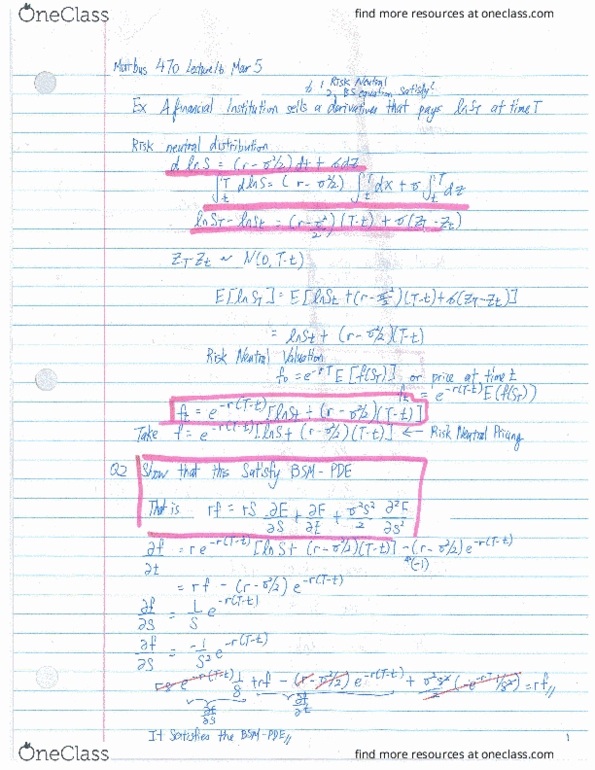 OneClass
find more resources at oneclass.com
Matbus 470 Lecture 16 Mar 5
1 Risk Neutral
2, BS equation Satisfy?
Ex A financial Institution sells a derivatives that pays ln S_T at time T
Risk neutral distribution
d ln S = (r - σ²/2) dt + σ dz
∫_t^T d ln S = (r - σ²/2) ∫_t^T dx + σ ∫_t^T dz
ln S_T - ln S_t = (r - σ²/2)(T-t) + σ(Z_T - Z_t)
Z_T Z_t ~ N(0, T-t)
E[ln S_T] = E[ln S_t + (r - σ²/2)(T-t) + σ(Z_T - Z_t)]
= ln S_t + (r - σ²/2)(T-t)
Risk Neutral Valuation
f_0 = e^{-rT} E[f(S_T)] or price at time t
f_t = e^{-r(T-t)} E(f(S_T))
f_t = e^{-r(T-t)} [ln S_t + (r - σ²/2)(T-t)]
Take f = e^{-r(T-t)} [ln S + (r - σ²/2)(T-t)] ← Risk Neutral Pricing
Q2 Show that this Satisfy BSM-PDE
That is rf = rS ∂F/∂S + ∂F/∂t + σ²S²/2 ∂²F/∂S²
∂f/∂t = re^{-r(T-t)} [ln S + (r - σ²/2)(T-t)] - (r - σ²/2) e^{-r(T-t)}
(-1)
= rf - (r - σ²/2) e^{-r(T-t)}
∂f/∂S = 1/S e^{-r(T-t)}
∂f/∂S = -1/S² e^{-r(T-t)}
rS e^{-r(T-t)} 1/S + rf - (r - σ²/2) e^{-r(T-t)} + σ²S²/2 (-e^{-r} 1/S²) = rf //
∂f/∂S ∂f/∂t
It Satisfies the BSM-PDE //
1
OneClass
find more resources at oneclass.com